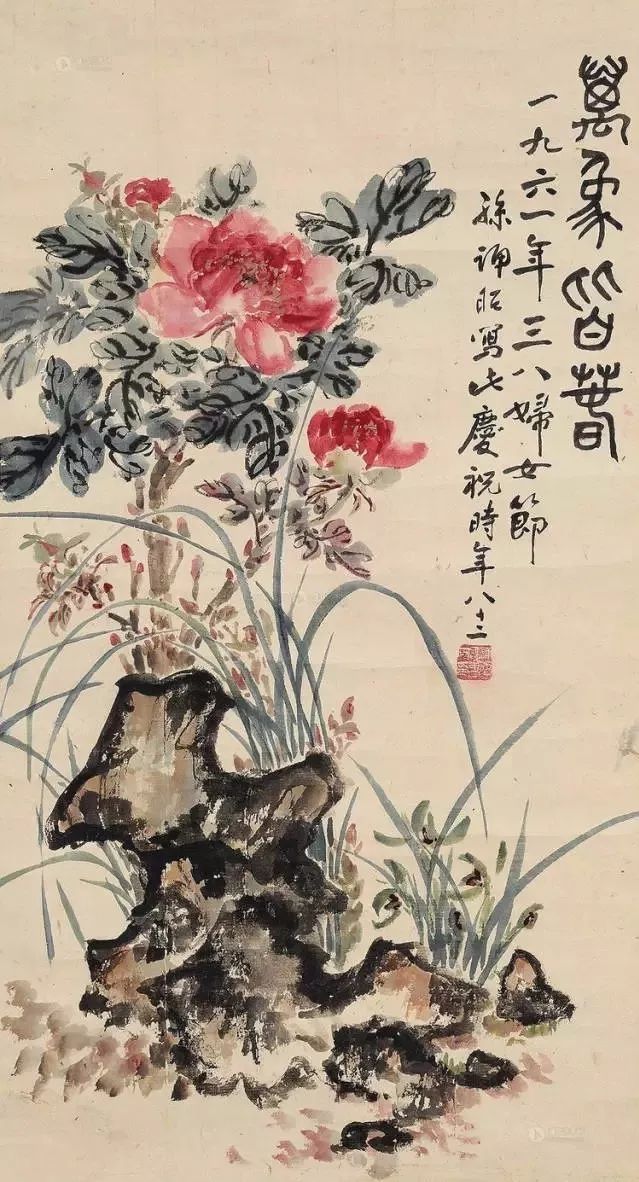 萬象皆春
一九六一年三八婦女節
孫誦昭寫此慶祝時年八十二